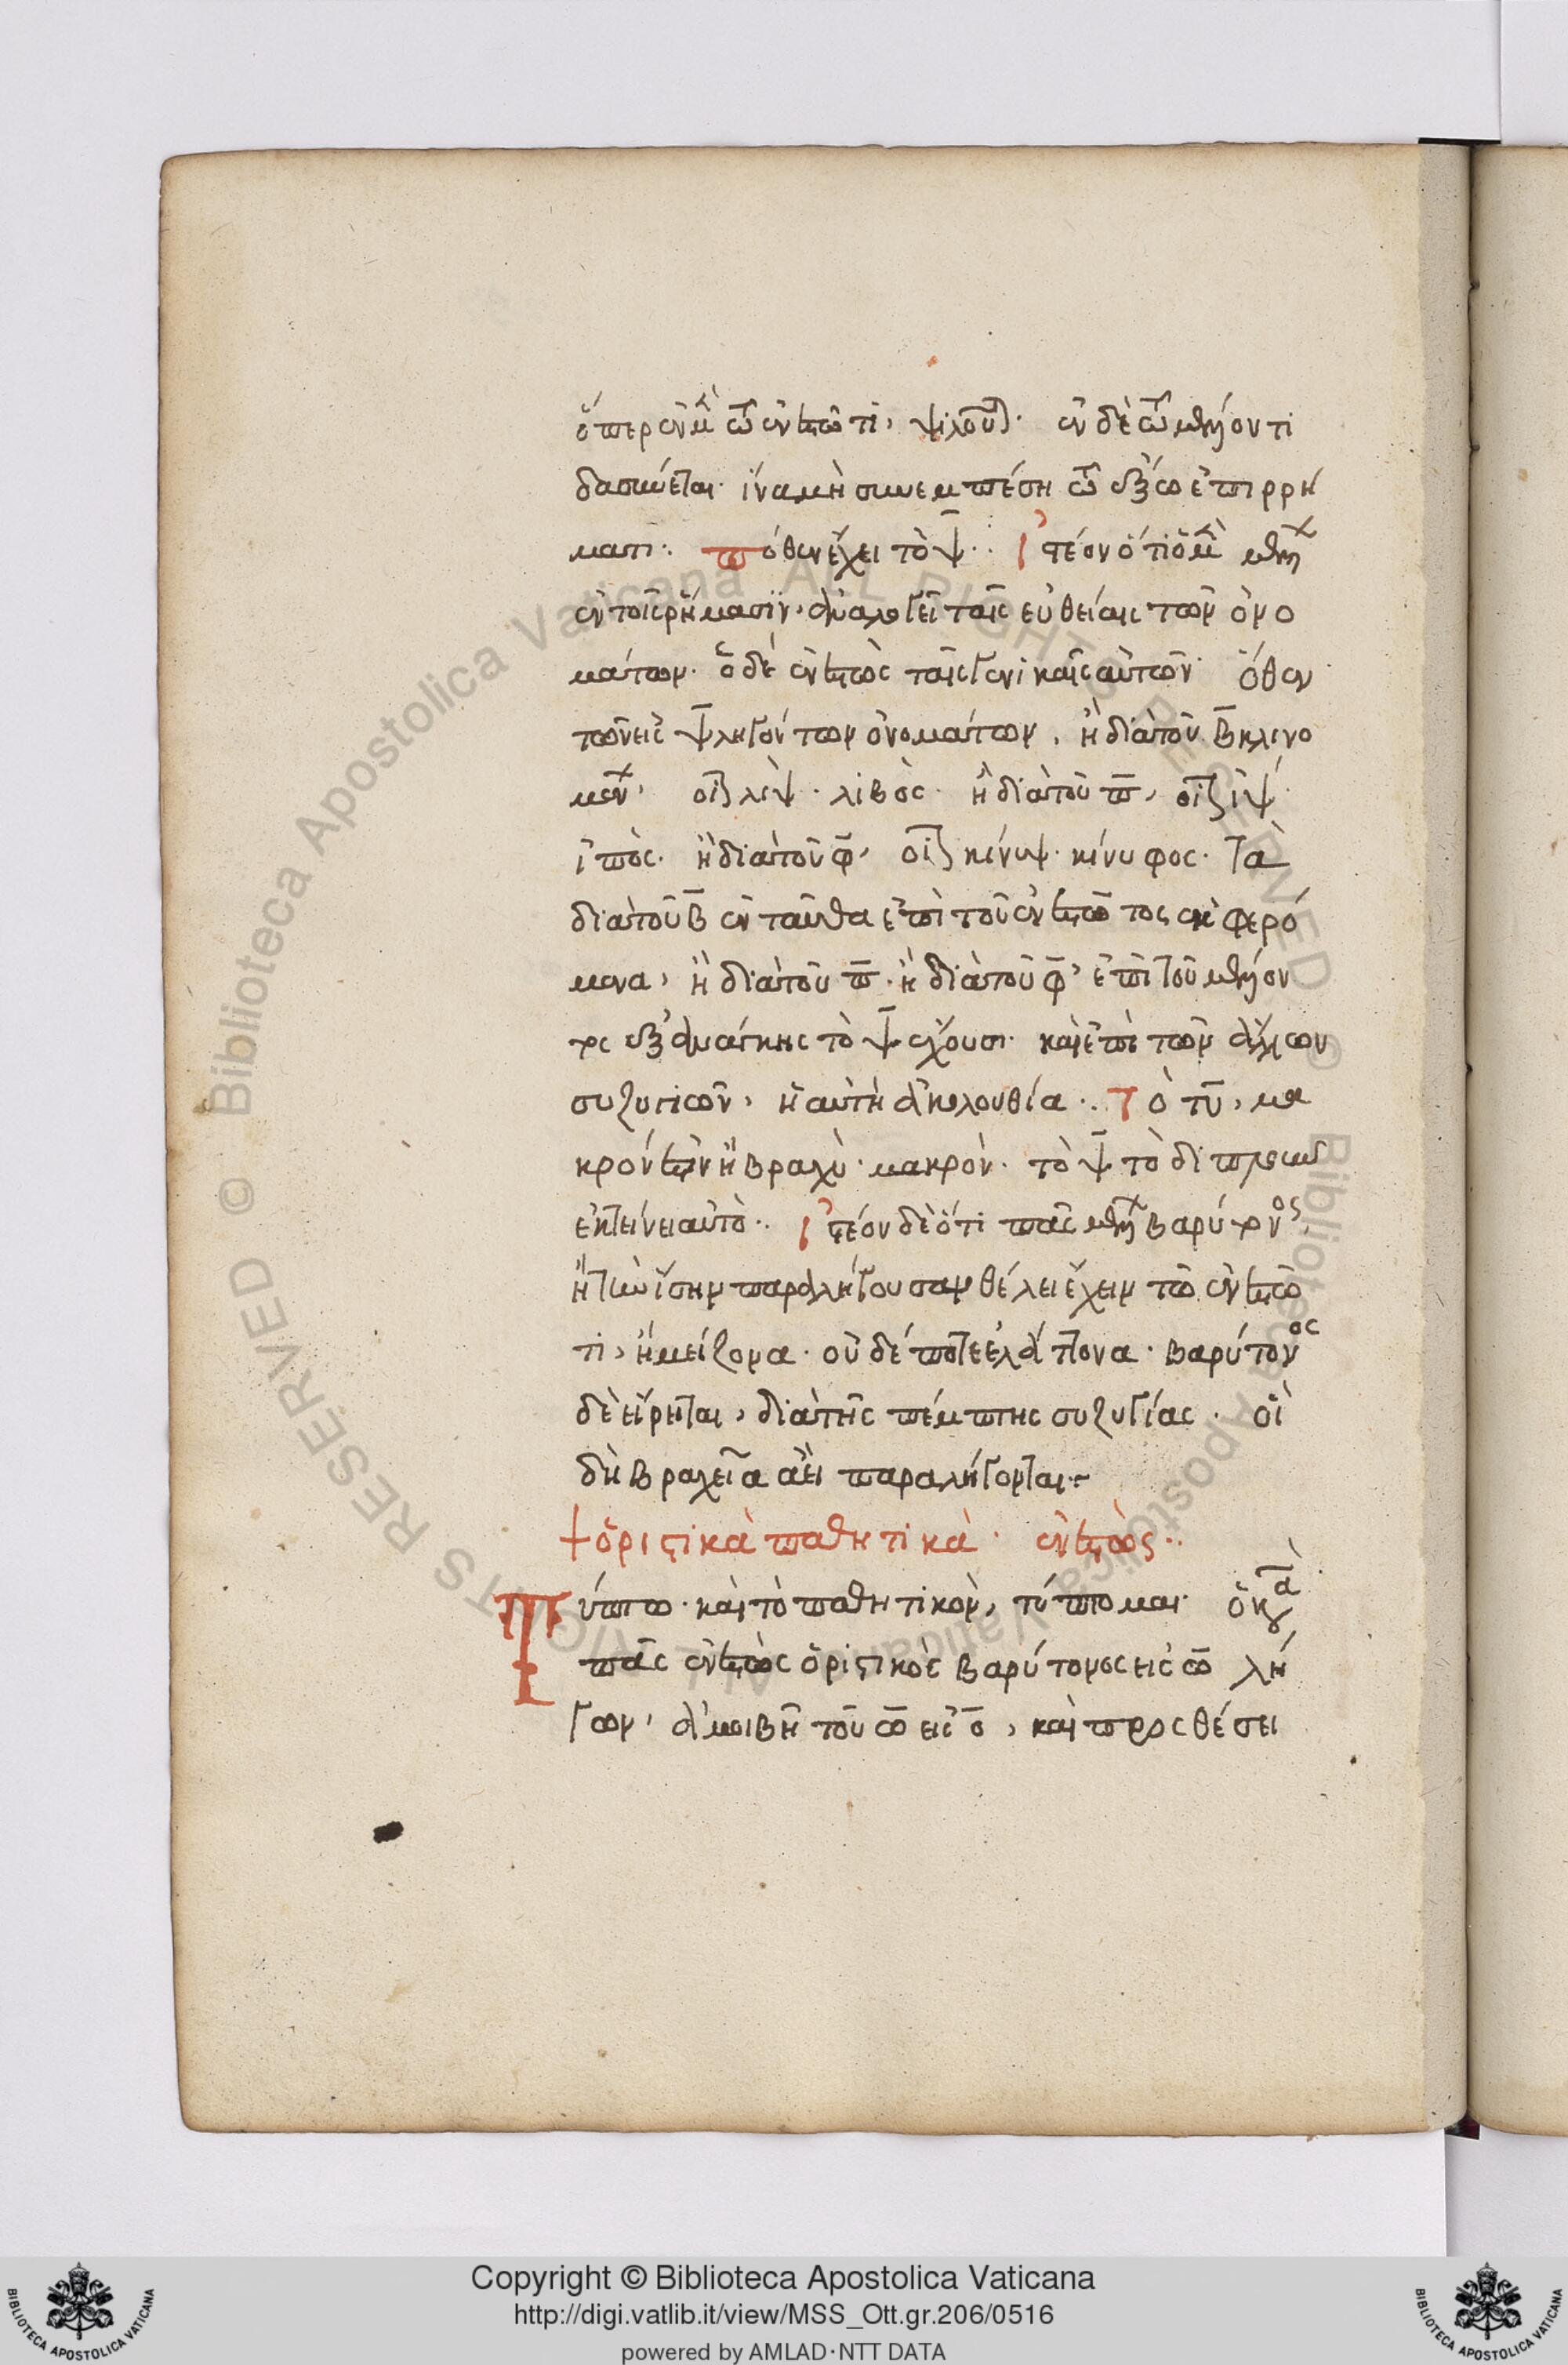 ὅπερ ἐν μὲν τῷ ἐνεστῶτι, ψιλοῦται· ἐν δὲ τῷ μέλλοντι
δασύνεται· ἵνα μὴ συνεμπέση τῷ ἔξω ἐπιρρή
ματι·. πόθεν ἔχει τὸ ψ·. ἰστέον ὅτι ὁ μὲν μέλλων
ἐν τοῖς ρήμασιν, ἀναλογεῖ ταῖς εὐθείαις τῶν ὀνο
μάτων· ὁ δὲ ἐνεστὼς ταῖς γενικαῖς αὐτῶν· ὅθεν
τῶν εἰς ψ ληγόντων ὀνομάτων, ἢ διὰ τοῦ β κλινο
μένων, οἷον λὶψ· λιβὸς· ἢ διὰ τοῦ π, οἷον ἲψ·
ἰπὸς· ἢ διὰ τοῦ φ, οἷον κίνυψ· κίνυφος· τὰ
διὰ τοῦ β ἐνταῦθα ἐπὶ τοῦ ἐνεστῶτος ἐκφερό
μενα, ἢ διὰ τοῦ π· ἢ διὰ τοῦ φ, ἐπὶ τοῦ μέλλον
τος ἐξ ἀνάγκης τὸ ψ ἔχουσι· καὶ ἐπὶ τῶν ἄλλων
συζυγιῶν, ἡ αὐτὴ ἀκολουθία·. Τὸ τυ, μα
κρόν ἐστιν ἢ βραχὺ· μακρὸν· τὸ ψ τὸ διπλοῦν
ἐκτείνει αὐτὸ·. ἰστέον δὲ ὅτι πᾶς μέλλων βαρύτονος
ἢ τὴν ἴσην παραλήγουσαν θέλει ἔχειν τῶ ἐνεστῶ
τι, ἢ μείζονα· οὐδέποτε ἐλάττονα· βαρύτονος
δὲ εἴρηται, διὰ τῆς πέμπτης συζυγίας· οἳ
δὴ βραχεῖα ἀεὶ παραλήγονται·
+ ὁριστικὰ παθητικὰ· ἐνεστὼς·.
Τύπτω· καὶ τὸ παθητικὸν, τύπτομαι· ὁ κανὼν
πᾶς ἐνεστὼς ὁριστικὸς βαρύτονος εἰς ω λή
γων, ἀμοιβῆ τοῦ ω εἰς ο, καὶ προσθέσει
Copyright © Biblioteca Apostolica Vaticana
http://digi.vatlib.it/view/MSS_Ott.gr.206/0516
powered by AMLAD·NTT DATA